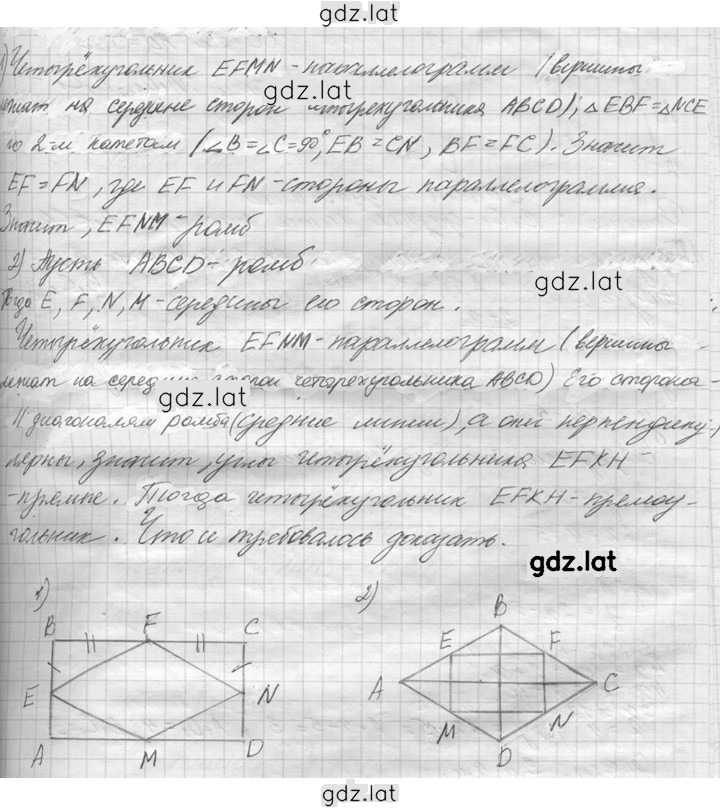 gdz.lat
1) Четырёхугольник EFMN - параллелограмм (вершины
лежат на середине сторон четырехугольника ABCD); △EBF=△NCE
по 2-м катетам (∠B=∠C=90°, EB=CN, BF=FC). Значит
EF=FN, где EF и FN - стороны параллелограмма.
Значит, EFNM - ромб
2) Пусть ABCD - ромб
Тогда E, F, N, M - середины его сторон.
Четырёхугольник EFNM - параллелограмм (вершины
лежат на середине сторон четырехугольника ABCD) Его стороны
|| диагоналям ромба (средние линии), а они перпендику-
лярны, значит, углы четырёхугольника EFKH -
-прямые. Тогда четырёхугольник EFKH - прямоу-
гольник. Что и требовалось доказать.
gdz.lat
gdz.lat
gdz.lat
gdz.lat
1)
2)
B F C
E N
A M D
B
E F
A C
M N
D
gdz.lat